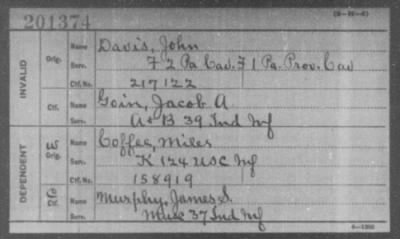 (3—10—6)
201374
INVALID
Orig. Name Davis, John
Serv. F 2 Pa. Cav. & F 1 Pa. Prov. Cav
Ctf. No. 217122
Ctf. Name Goin, Jacob A
Serv. A & B 39 Ind Inf
DEPENDENT
W Orig. Name Coffee, Miles
Serv. K 124 USC Inf
Ctf. No. 158919
C Ctf. Name Murphy, James S.
Serv. Music 37 Ind Inf